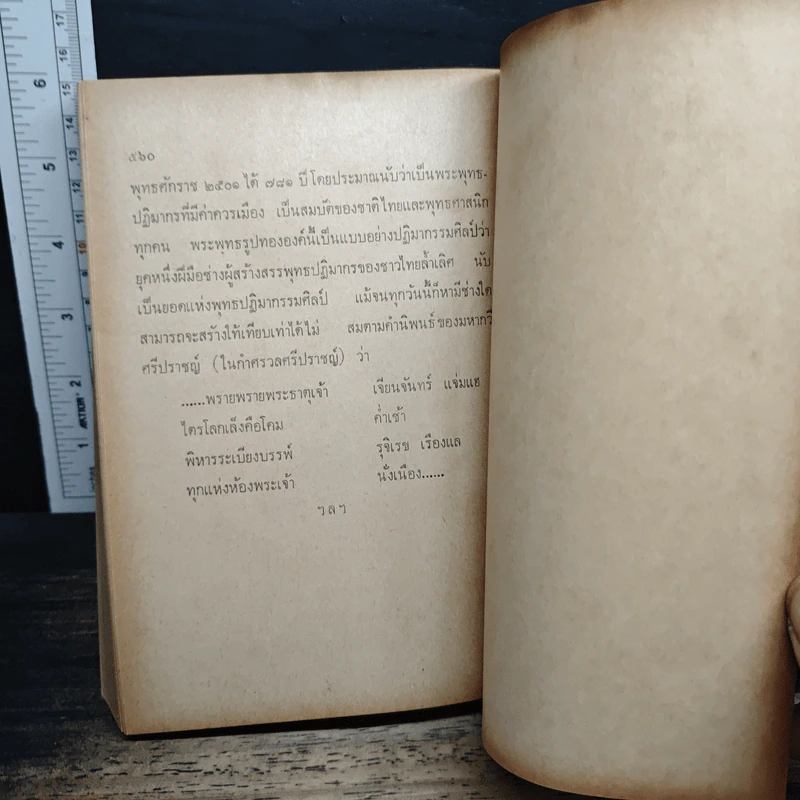 ๕๖๐
พุทธศักราช ๒๕๐๑ ได้ ๗๘๑ ปี โดยประมาณนับว่าเป็นพระพุทธ-
ปฏิมากรที่มีค่าควรเมือง เป็นสมบัติของชาติไทยและพุทธศาสนิก
ทุกคน พระพุทธรูปทององค์นี้เป็นแบบอย่างปฏิมากรรมศิลป์ว่า
ยุคหนึ่งฝีมือช่างผู้สร้างสรรพุทธปฏิมากรของชาวไทยล้ำเลิศ นับ
เป็นยอดแห่งพุทธปฏิมากรรมศิลป์ แม้จนทุกวันนี้ก็หามีช่างใด
สามารถจะสร้างให้เทียบเท่าได้ไม่ สมตามคำนิพนธ์ของมหากวี
ศรีปราชญ์ (ในกำศรวลศรีปราชญ์) ว่า
......พรายพรายพระธาตุเจ้า เจียนจันทร์ แจ่มแฮ
ไตรโลกเล็งคือโคม ค่ำเช้า
พิหารระเบียงบรรพ์ รุจิเรข เรืองแล
ทุกแห่งห้องพระเจ้า นั่งเนือง......
ฯ ล ฯ
6
5
4
3
2
1
17
16
15
14
13
12
11
10